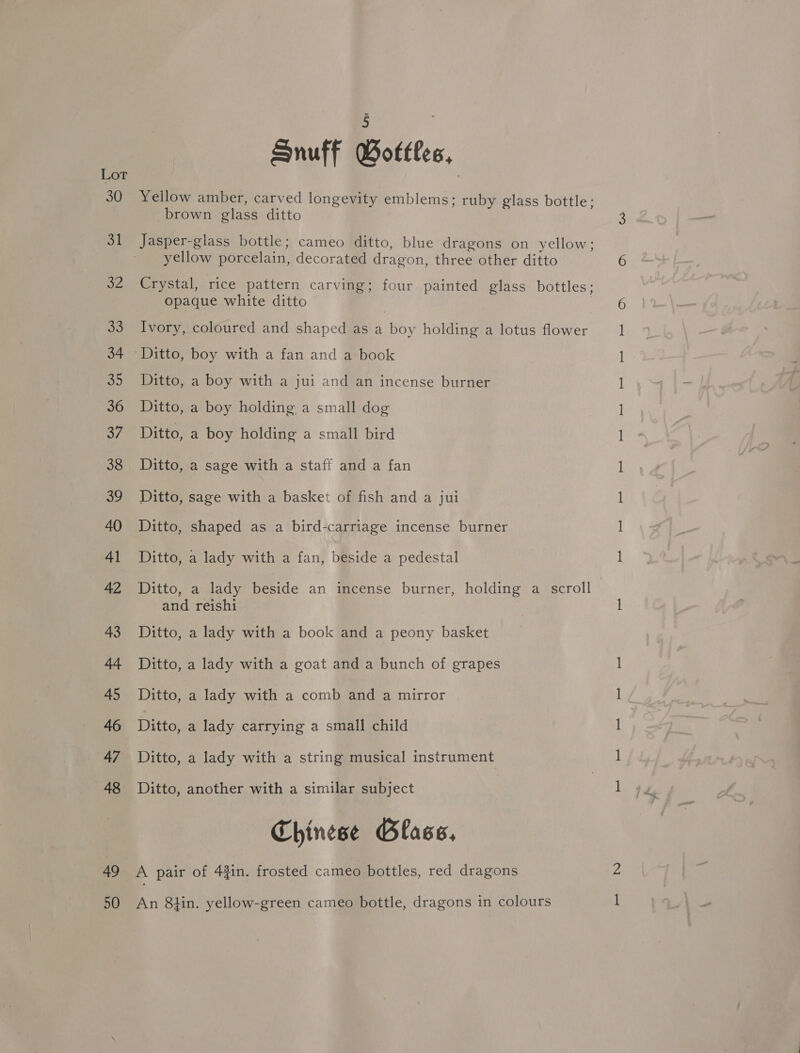 5
Snuff Bottles.
Lot
30 Yellow amber, carved longevity emblems; ruby glass bottle;
brown glass ditto 3
31 Jasper-glass bottle; cameo ditto, blue dragons on yellow;
yellow porcelain, decorated dragon, three other ditto 6
32 Crystal, rice pattern carving; four painted glass bottles;
opaque white ditto 6
33 Ivory, coloured and shaped as a boy holding a lotus flower 1
34 Ditto, boy with a fan and a book 1
35 Ditto, a boy with a jui and an incense burner 1
36 Ditto, a boy holding a small dog 1
37 Ditto, a boy holding a small bird 1
38 Ditto, a sage with a staff and a fan 1
39 Ditto, sage with a basket of fish and a jui 1
40 Ditto, shaped as a bird-carriage incense burner 1
41 Ditto, a lady with a fan, beside a pedestal 1
42 Ditto, a lady beside an incense burner, holding a scroll
and reishi 1
43 Ditto, a lady with a book and a peony basket
44 Ditto, a lady with a goat and a bunch of grapes 1
45 Ditto, a lady with a comb and a mirror 1
46 Ditto, a lady carrying a small child 1
47 Ditto, a lady with a string musical instrument 1
48 Ditto, another with a similar subject 1
Chinese Glass.
49 A pair of 4¾in. frosted cameo bottles, red dragons 2
50 An 8¼in. yellow-green cameo bottle, dragons in colours 1